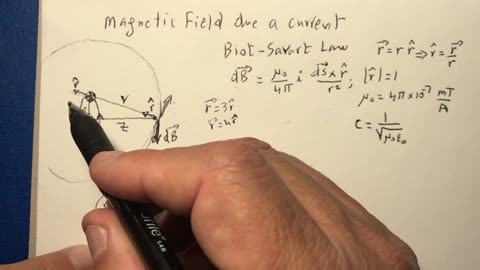 magnetic Field due a current
Biot-Savart Law
r⃗ = r r̂ ⇒ r̂ = r⃗/r
d⃗B = μ₀/4π i d⃗s × r̂/r² ; |r̂| = 1
μ₀ = 4π × 10⁻⁷ mT/A
C = 1/√μ₀ε₀
r⃗ = 3r̂
r⃗ = 4r̂
r̂
r
r̂
z
d⃗B